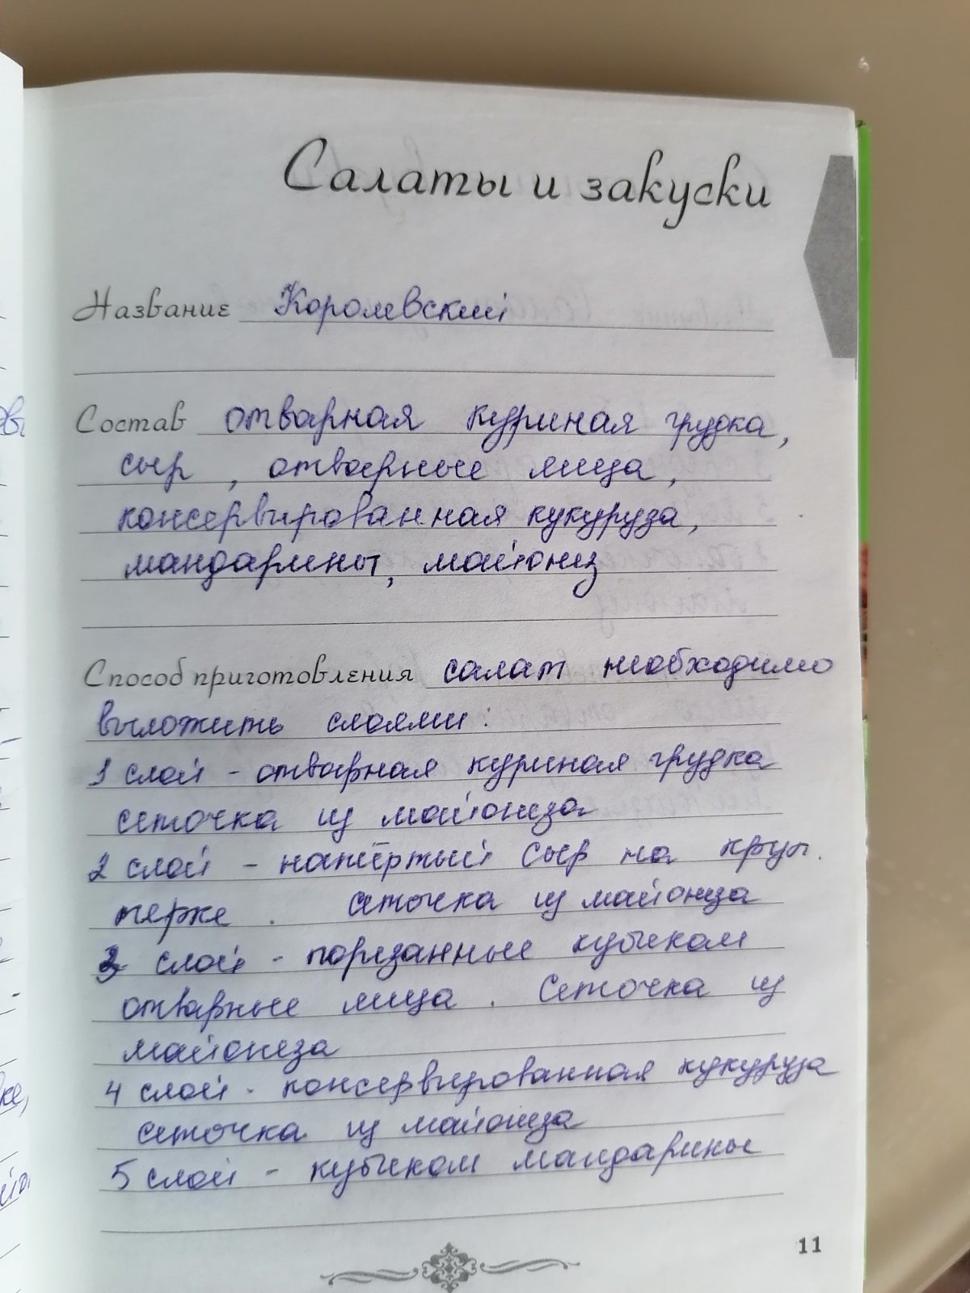 Салаты и закуски
Название Королевский
Состав отварная куриная грудка,
сыр, отварные яйца,
консервированная кукуруза,
мандарины, майонез
Способ приготовления салат необходимо
выложить слоями:
1 слой - отварная куриная грудка
сеточка из майонеза
2 слой - натёртый сыр на круп.
терке. Сеточка из майонеза
3 слой - порезанные кубиком
отварные яйца. Сеточка из
майонеза
4 слой - консервированная кукуруза
сеточка из майонеза
5 слой - кубиком мандарины
11